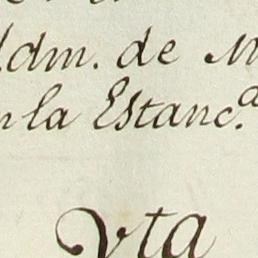 Adm. de M
n la Estanc.a
Vta